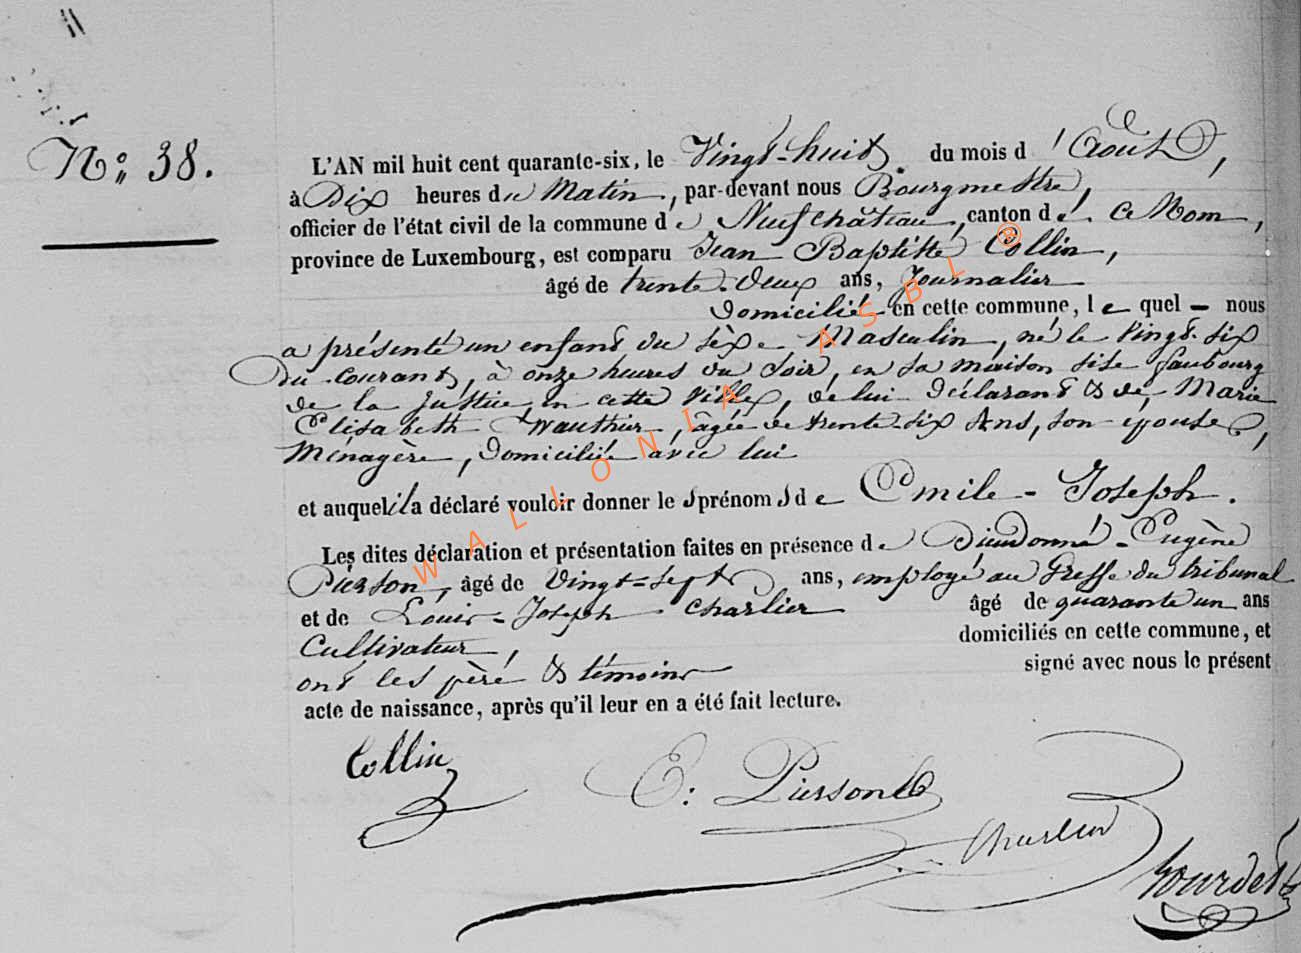 N°: 38.
L'AN mil huit cent quarante-six, le Vingt-huit du mois d'Août,
à Dix heures du Matin, par-devant nous Bourgmestre,
officier de l'état civil de la commune de Neufchâteau, canton de ce Nom,
province de Luxembourg, est comparu Jean Baptiste Collin,
âgé de trente-deux ans, Journalier
Domicilié en cette commune, le quel - nous
a présenté un enfant du sèxe Masculin, né le Vingt-six
du courant, à onze heures du Soir, en sa maison sise faubourg
de la Justice en cette Ville, de lui Déclarant & de Marie
Elisabeth Wauthier, âgée de trente-six Ans, son épouse,
Ménagère, Domiciliée avec lui
et auquel il a déclaré vouloir donner les prénoms de Emile - Joseph.
Les dites déclaration et présentation faites en présence de Dieudonné-Eugène
Pierson, âgé de Vingt-sept ans, employé au Greffe du tribunal
et de Louis-Joseph Charlier âgé de quarante un ans
Cultivateur, domiciliés en cette commune, et
ont les père & témoins signé avec nous le présent
acte de naissance, après qu'il leur en a été fait lecture.
Collin
E: Pierson
Charlier
WALLONIA ASBL ®